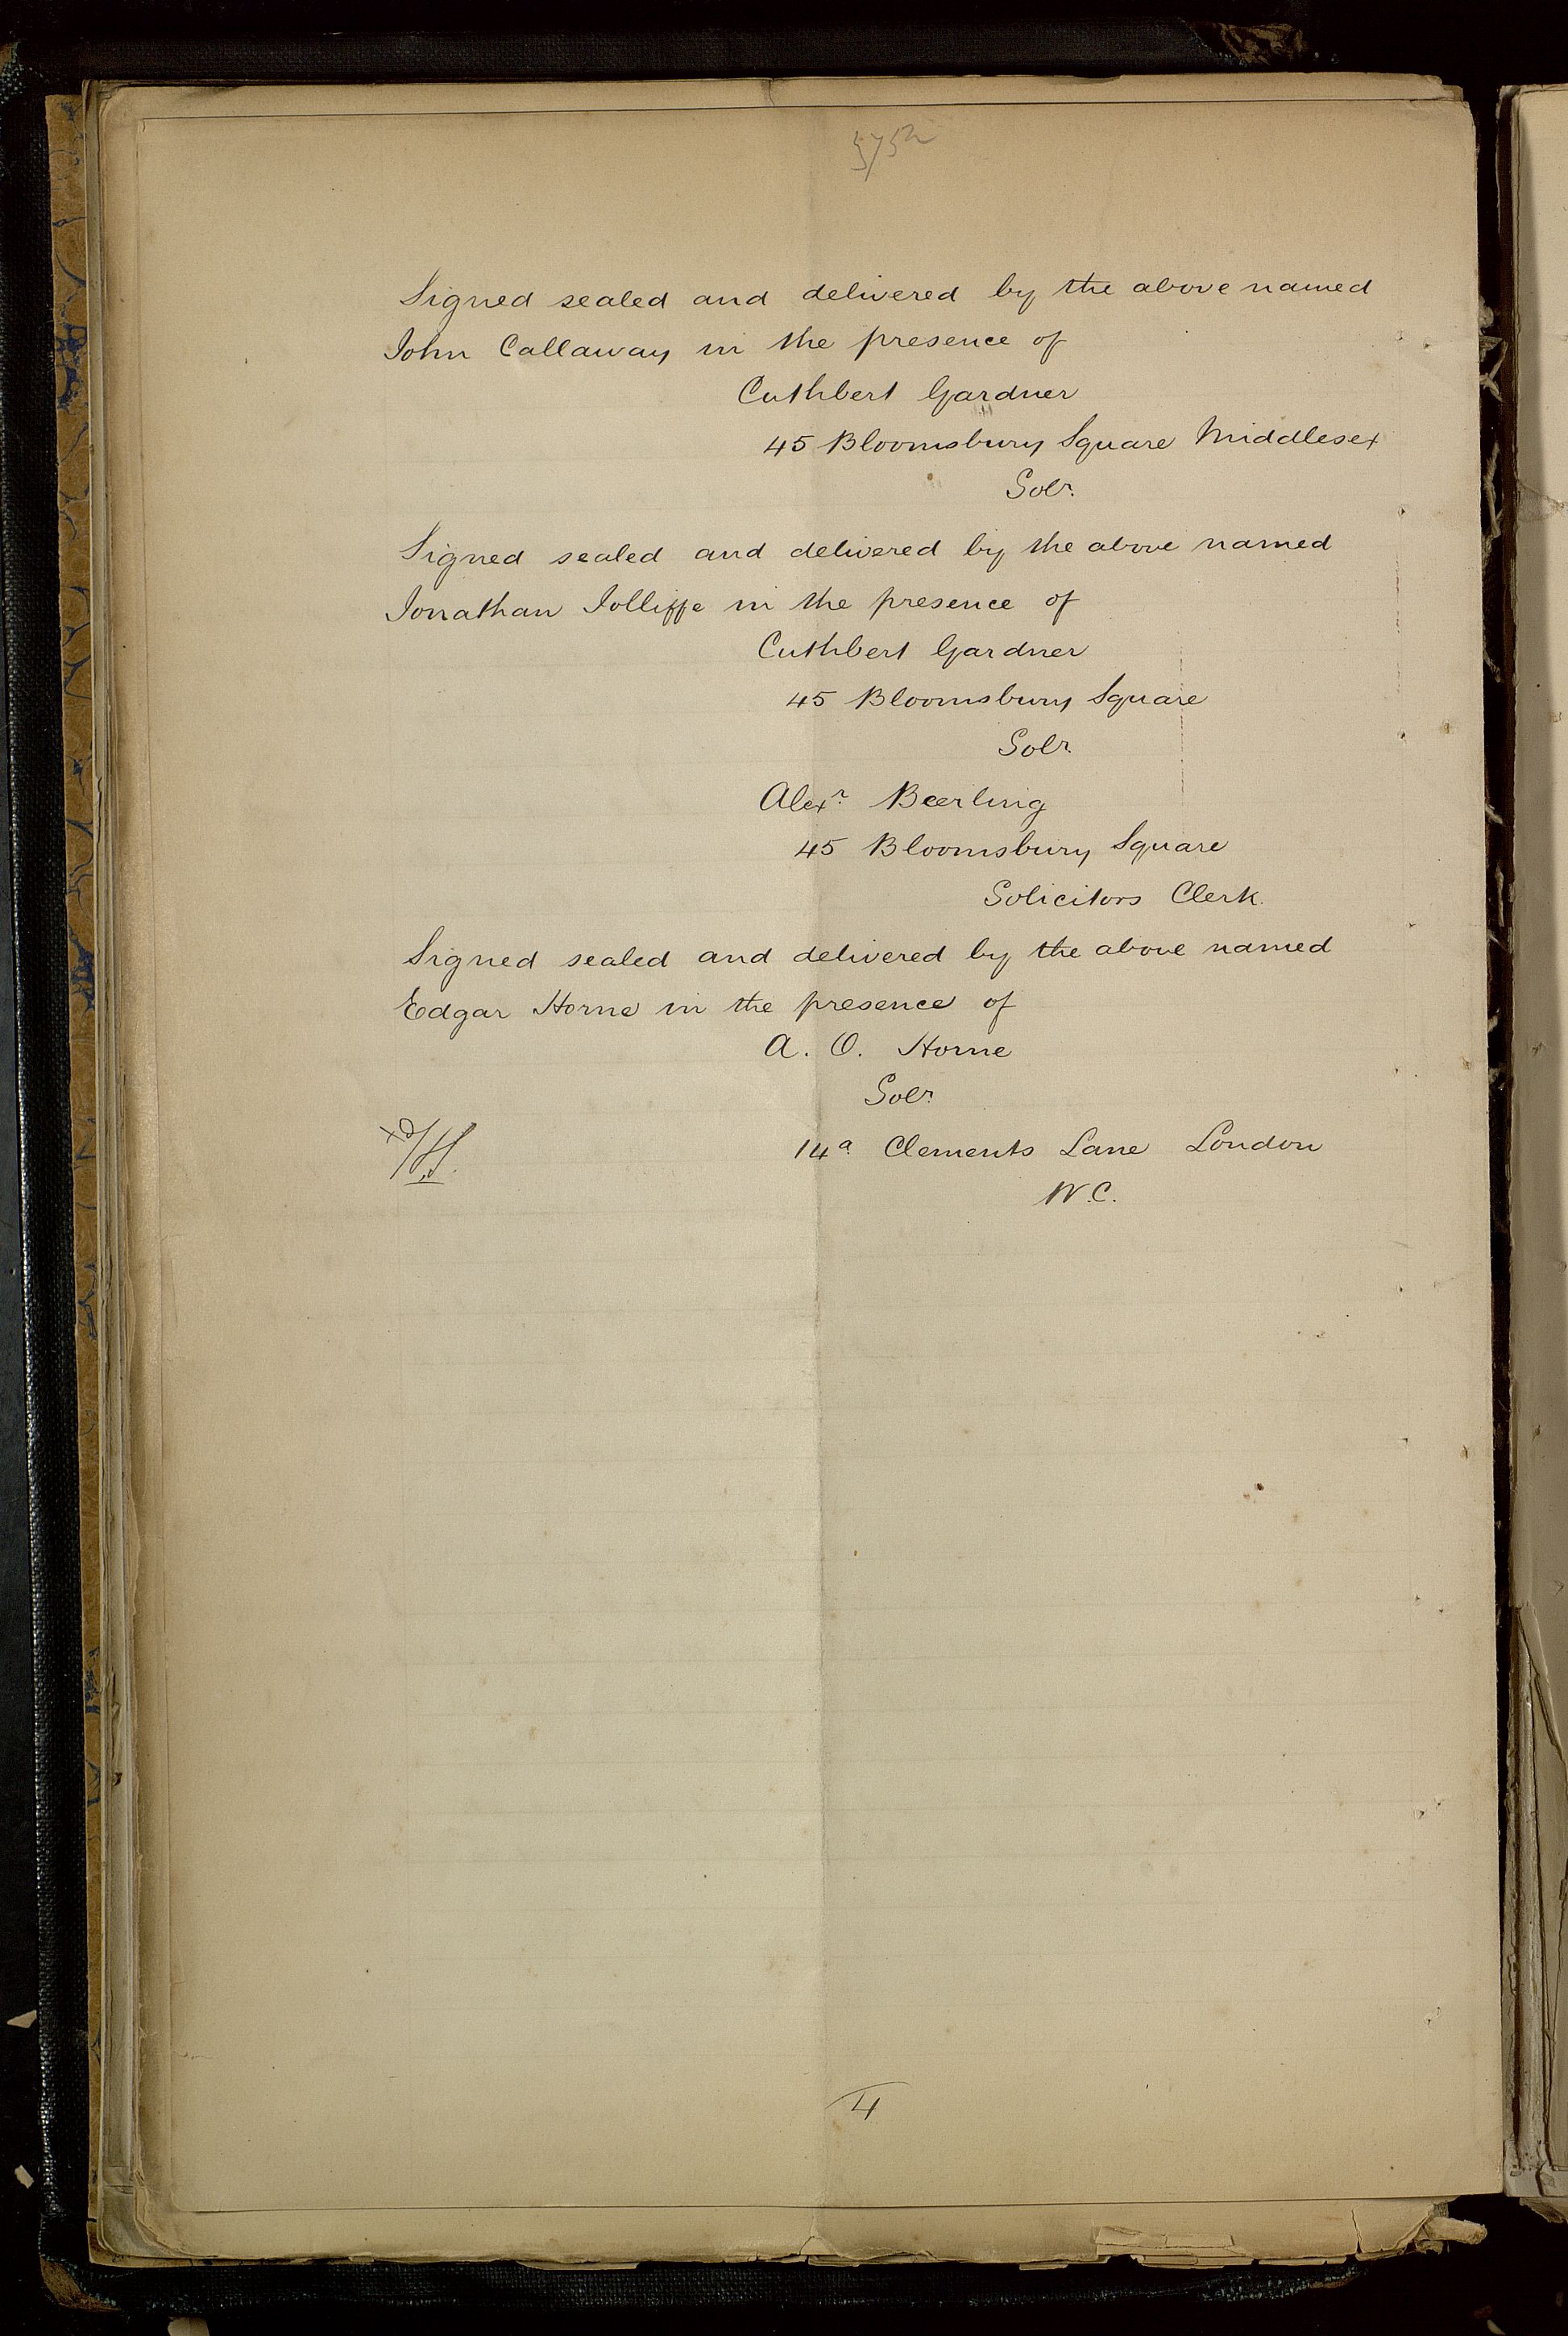 Signed sealed and delivered by the above named
John Callaway in the presence of
Cuthbert Gardner
45 Bloomsbury Square Middlesex
Solr.
Signed sealed and delivered by the above named
Jonathan Jolliffe in the presence of
Cuthbert Gardner
45 Bloomsbury Square
Solr.
Alexr. Beerling
45 Bloomsbury Square
Solicitors Clerk.
Signed sealed and delivered by the above named
Edgar Horne in the presence of
A. O. Horne
Solr.
14a Clements Lane London
W.C.
4